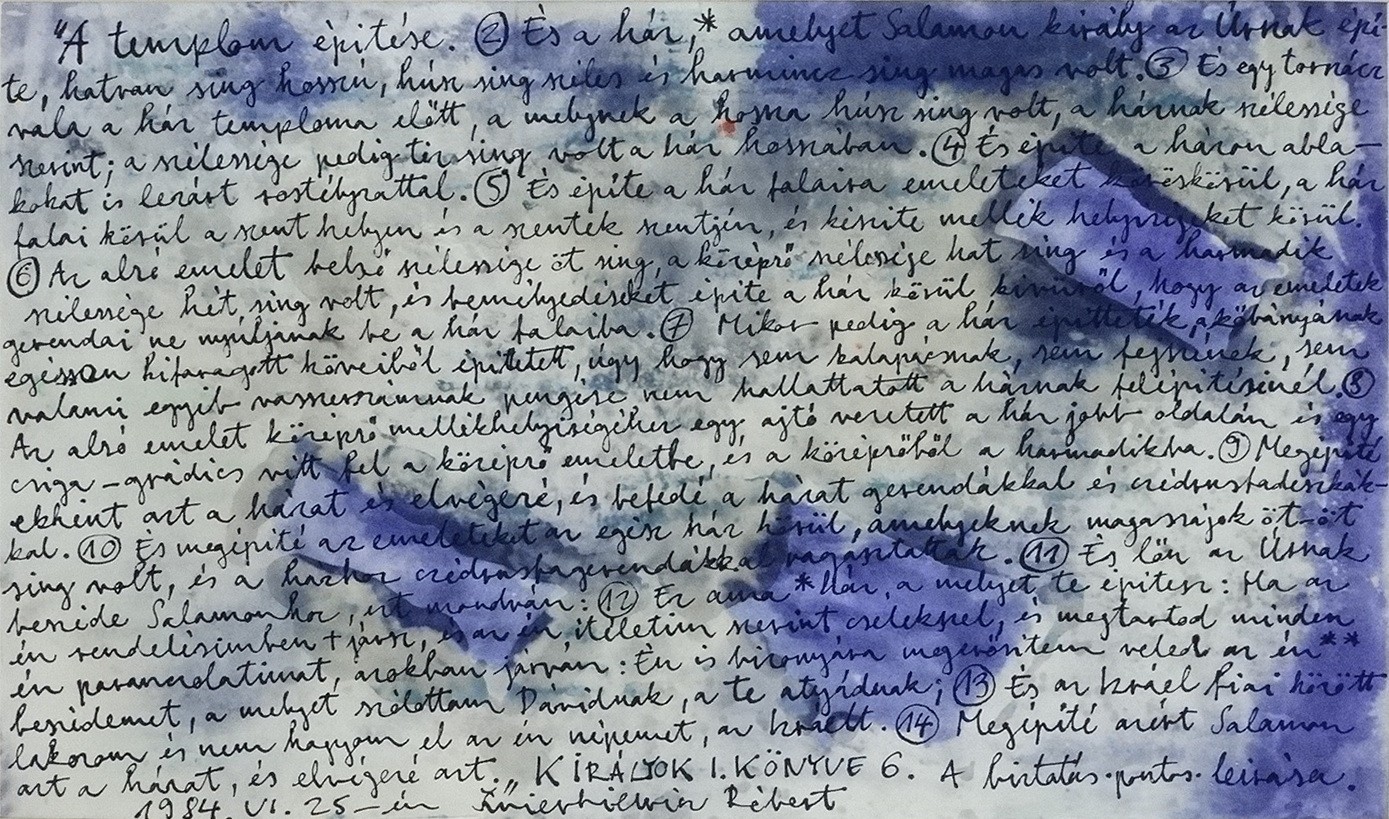 "A templom építése. ② És a ház,* amelyet Salamon király az Úrnak épí-
te, hatvan sing hosszú, húsz sing széles és harmincz sing magas volt. ③ És egy tornácz
vala a ház temploma előtt, a melynek a hossza húsz sing volt, a háznak szélessége
szerint; a szélessége pedig tíz sing volt a ház hosszában. ④ És építe a házon abla-
kokat is lezárt rostélyzattal. ⑤ És építe a ház falaira emeleteket köröskörül, a ház
falai körül a szent helyen és a szentek szentjén, és készite mellék helyiségeket körül.
⑥ Az alsó emelet belső szélessége öt sing, a középső szélessége hat sing és a harmadik
szélessége hét sing volt, és bemélyedéseket építe a ház körül kivülről, hogy az emeletek
gerendái ne nyúljanak be a ház falaiba. ⑦ Mikor pedig a ház építteték, a kőbányának
egészen kifaragott köveiből építtetett, úgy hogy sem kalapácsnak, sem fejszének, sem
valami egyéb vasszerszámnak pengése nem hallattatott a háznak felépítésénél. ⑧
Az alsó emelet középső mellékhelyiségéhez egy ajtó vezetett a ház jobb oldalán és egy
csiga-grádics vitt fel a középső emeletbe, és a középsőből a harmadikba. ⑨ Megépíté
ekként azt a házat és elvégezé, és befedé a házat gerendákkal és czédrusfadeszkák-
kal. ⑩ És megépíté az emeleteket az egész ház körül, amelyeknek magasságok öt-öt
sing volt, és a házhoz czédrusfagerendákkal ragasztattak. ⑪ És lőn az Úrnak
beszéde Salamonhoz, ezt mondván: ⑫ Ez ama *ház, a melyet te építesz: Ha az
én rendelésimben + jársz, és az én itéletim szerint cselekszel, és megtartod minden
én parancsolatimat, azokban járván: Én is bizonyára megerősítem veled az én**
beszédemet, a melyet szólottam Dávidnak, a te atyádnak; ⑬ És az Izráel fiai között
lakozom és nem hagyom el az én népemet, az Izraelt. ⑭ Megépíté azért Salamon
azt a házat, és elvégezé azt.„ KIRÁLYOK I. KÖNYVE 6. A biztatás pontos leirása.
1984. VI. 25-én Róbert